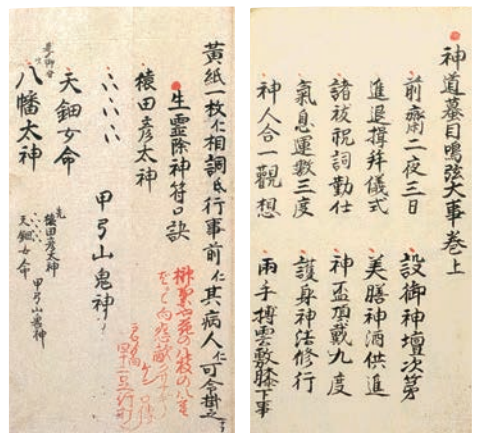 神道蟇目鳴弦大事巻上
前齋二夜三日　設御神壇次第
進退揖拜儀式　美膳神酒供進
諸祓祝詞勤仕　神盃頂戴九度
氣息運數三度　護身神法修行
神人合一觀想　兩手搏雲敷膝下事
黄紙一枚仁相調氐行事前仁其病人仁可令掛之
生靈除神符口訣
猿田彦太神
甲弓山鬼神
天鈿女命
八幡太神
猿田彦太神
甲弓山鬼神
天鈿女命